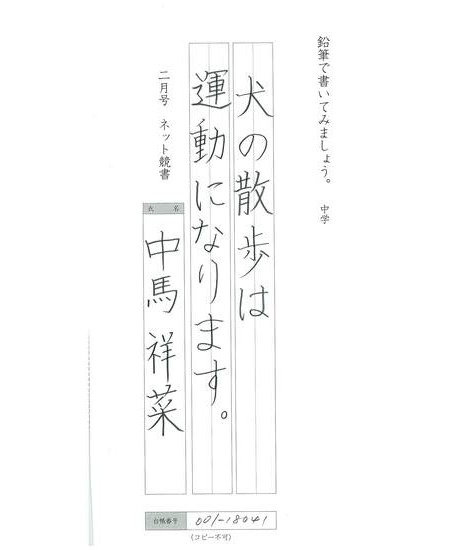 鉛筆で書いてみましょう。 中学
犬の散歩は
運動になります。
二月号 ネット競書
氏名
中馬祥菜
台帳番号 001-18041
(コピー不可)